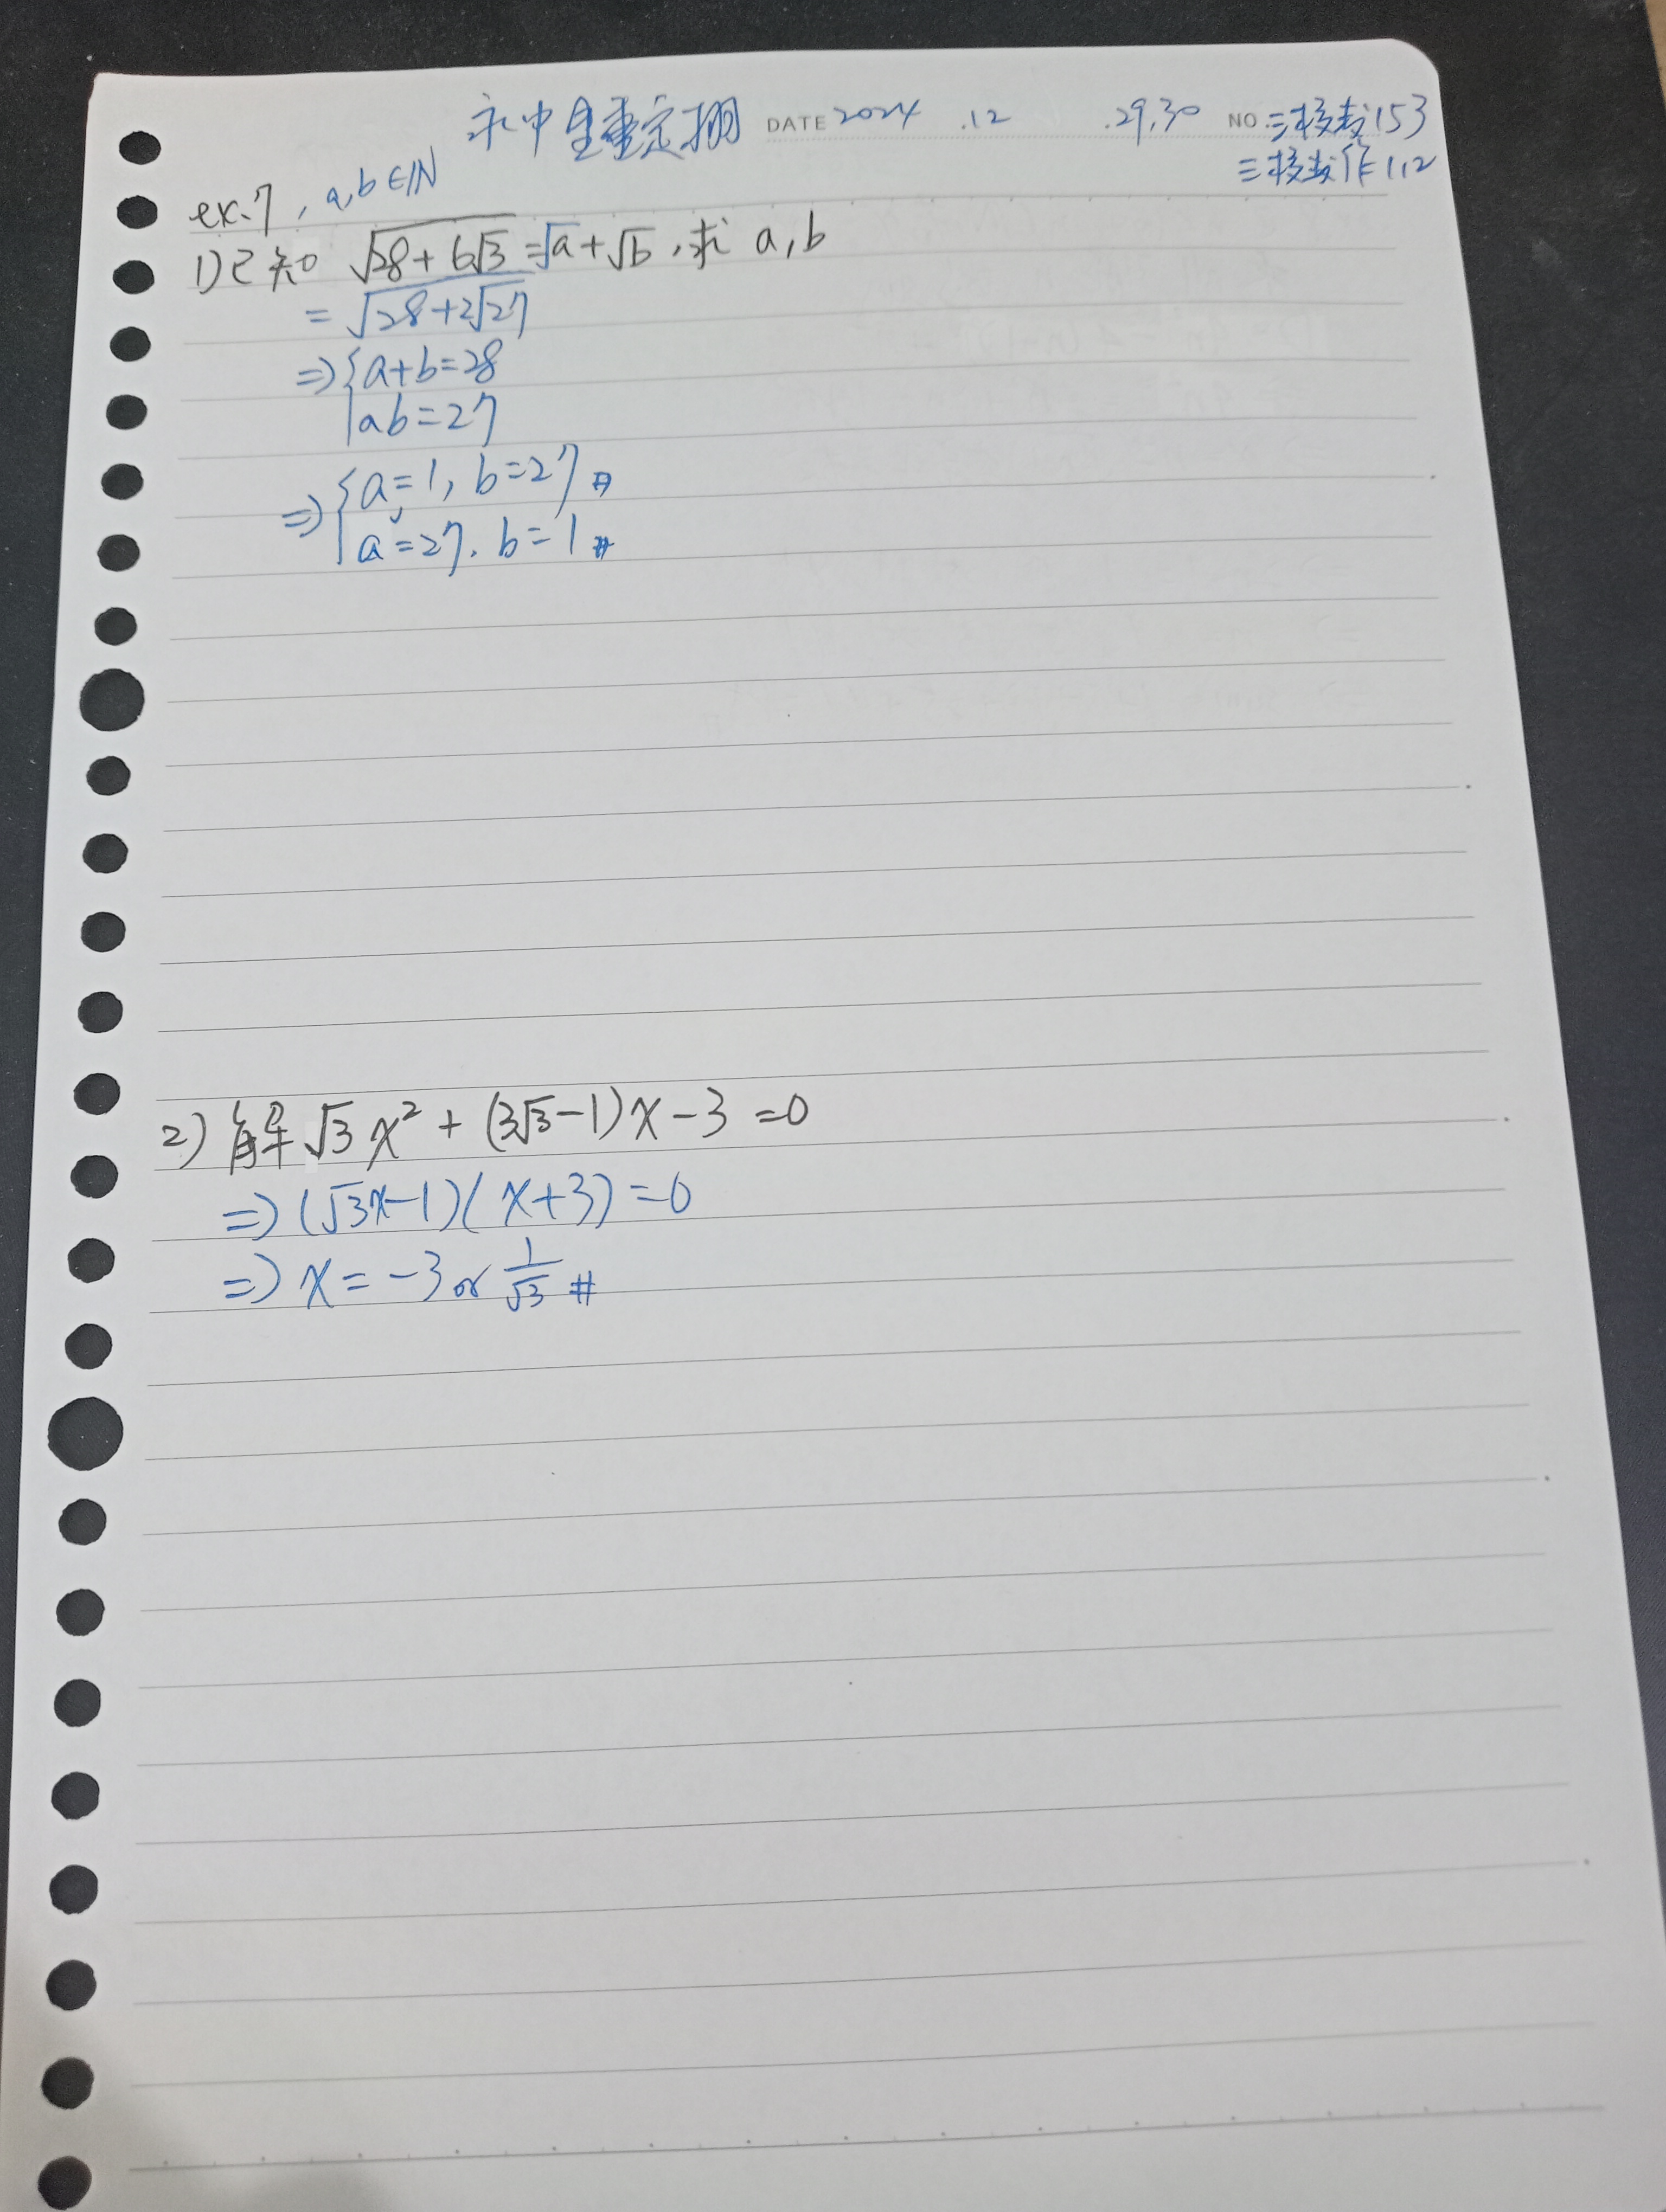 永中 DATE 2024 .12 .29.30 NO 三 153
三 作 112
ex.7, a,b∈ℕ
1) 已知 √(28+6√3) = √a + √b, 求 a, b
= √(28+2√27)
⇒ { a+b=28
ab=27
⇒ { a=1, b=27 #
a=27. b=1 #
2) 解 √3 x² + (3√3-1)x - 3 = 0
⇒ (√3x-1)(x+3) = 0
⇒ x = -3 or 1/√3 #